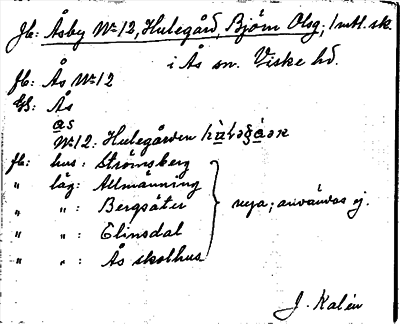 Jb: Åsby Nr 12, Hulegård, Björn Olsg, 1 mtl. sk.
i Ås sn. Viske hd.
fb: Ås Nr 12
Ås
as
Nr 12: Hulegården
fb: hus: Strömsberg
" läg: Allmänning
" " : Bergsäter
" " : Elinsdal
" " : Ås skolhus
nya; användas ej.
J. Kalén